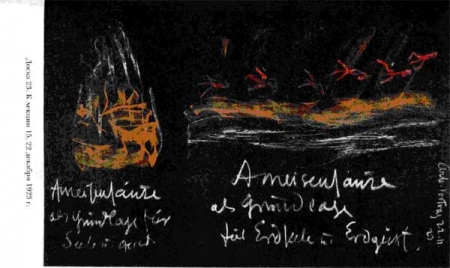 Доска 23. К лекции 15, 22 декабря 1923 г.
Ameisensäure
als Grundlage für
Seele u. Geist.
Ameisensäure
als Grundlage
für Erdseele u. Erdgeist.